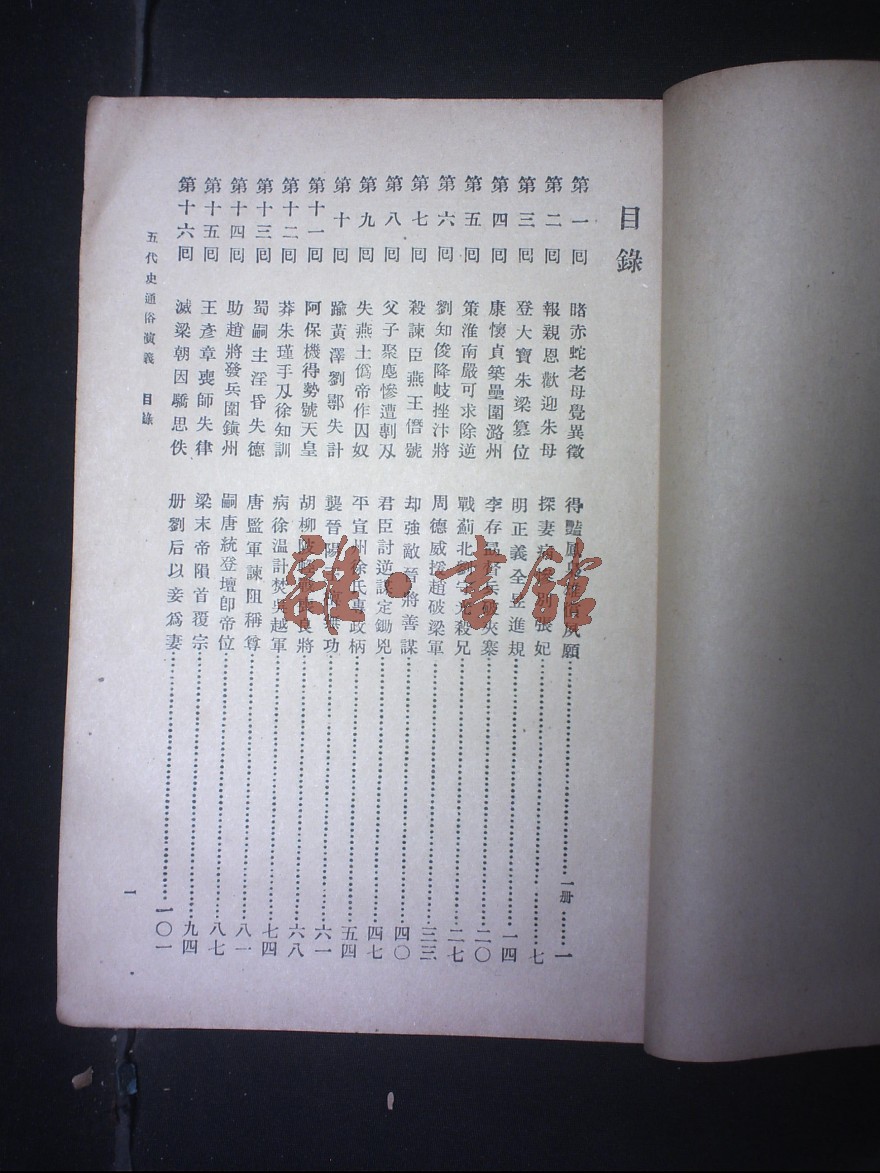 目錄
第一回 睹赤蛇老母覺異徵 得豔鳳 願 一册 一
第二回 報親恩歡迎朱母 探妻病 別張妃 七
第三回 登大寶朱梁篡位 明正義全昱進規 一四
第四回 康懷貞築壘圍潞州 李存 兵破夾寨 二〇
第五回 策淮南嚴可求除逆 戰薊北 殺兄 二七
第六回 劉知俊降岐挫汴將 周德威援趙破梁軍 三三
第七回 殺諫臣燕王僭號 却強敵晉將善謀 四〇
第八回 父子聚麀慘遭剸刃 君臣討逆謀定鋤兇 四七
第九回 失燕土僞帝作囚奴 平宣州徐氏專政柄 五四
第十回 踰黃澤劉鄩失計 襲晉陽 功 六一
第十一回 阿保機得勢號天皇 胡柳陂 良將 六八
第十二回 莽朱瑾手刃徐知訓 病徐溫計焚吳越軍 七四
第十三回 蜀嗣主淫昏失德 唐監軍諫阻稱尊 八一
第十四回 助趙將發兵圍鎭州 嗣唐統登壇卽帝位 八七
第十五回 王彥章喪師失律 梁末帝隕首覆宗 九四
第十六回 滅梁朝因驕思佚 册劉后以妾爲妻 一〇一
五代史通俗演義 目錄
一
雜·書館